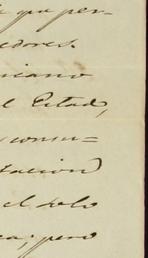 que per-
edores.
icano
el Estad,
consu-
tacion
el solo
ca; pero